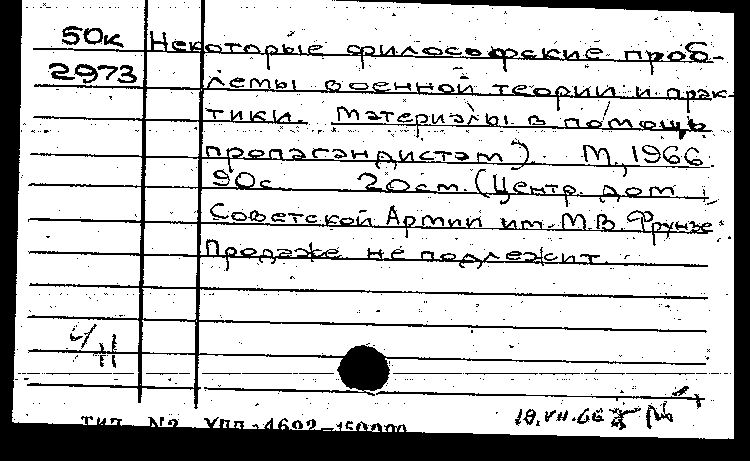 50к Некоторые философские проб-
2973 лемы военной теории и прак-
тики. Материалы в помощь
пропагандистам). М., 1966.
90с. 20см. (Центр. дом
Советской Армии им. М.В. Фрунзе.
Продаже не подлежит.
ч/
18.VII.66
тип. N2 УПП. 4692-150000